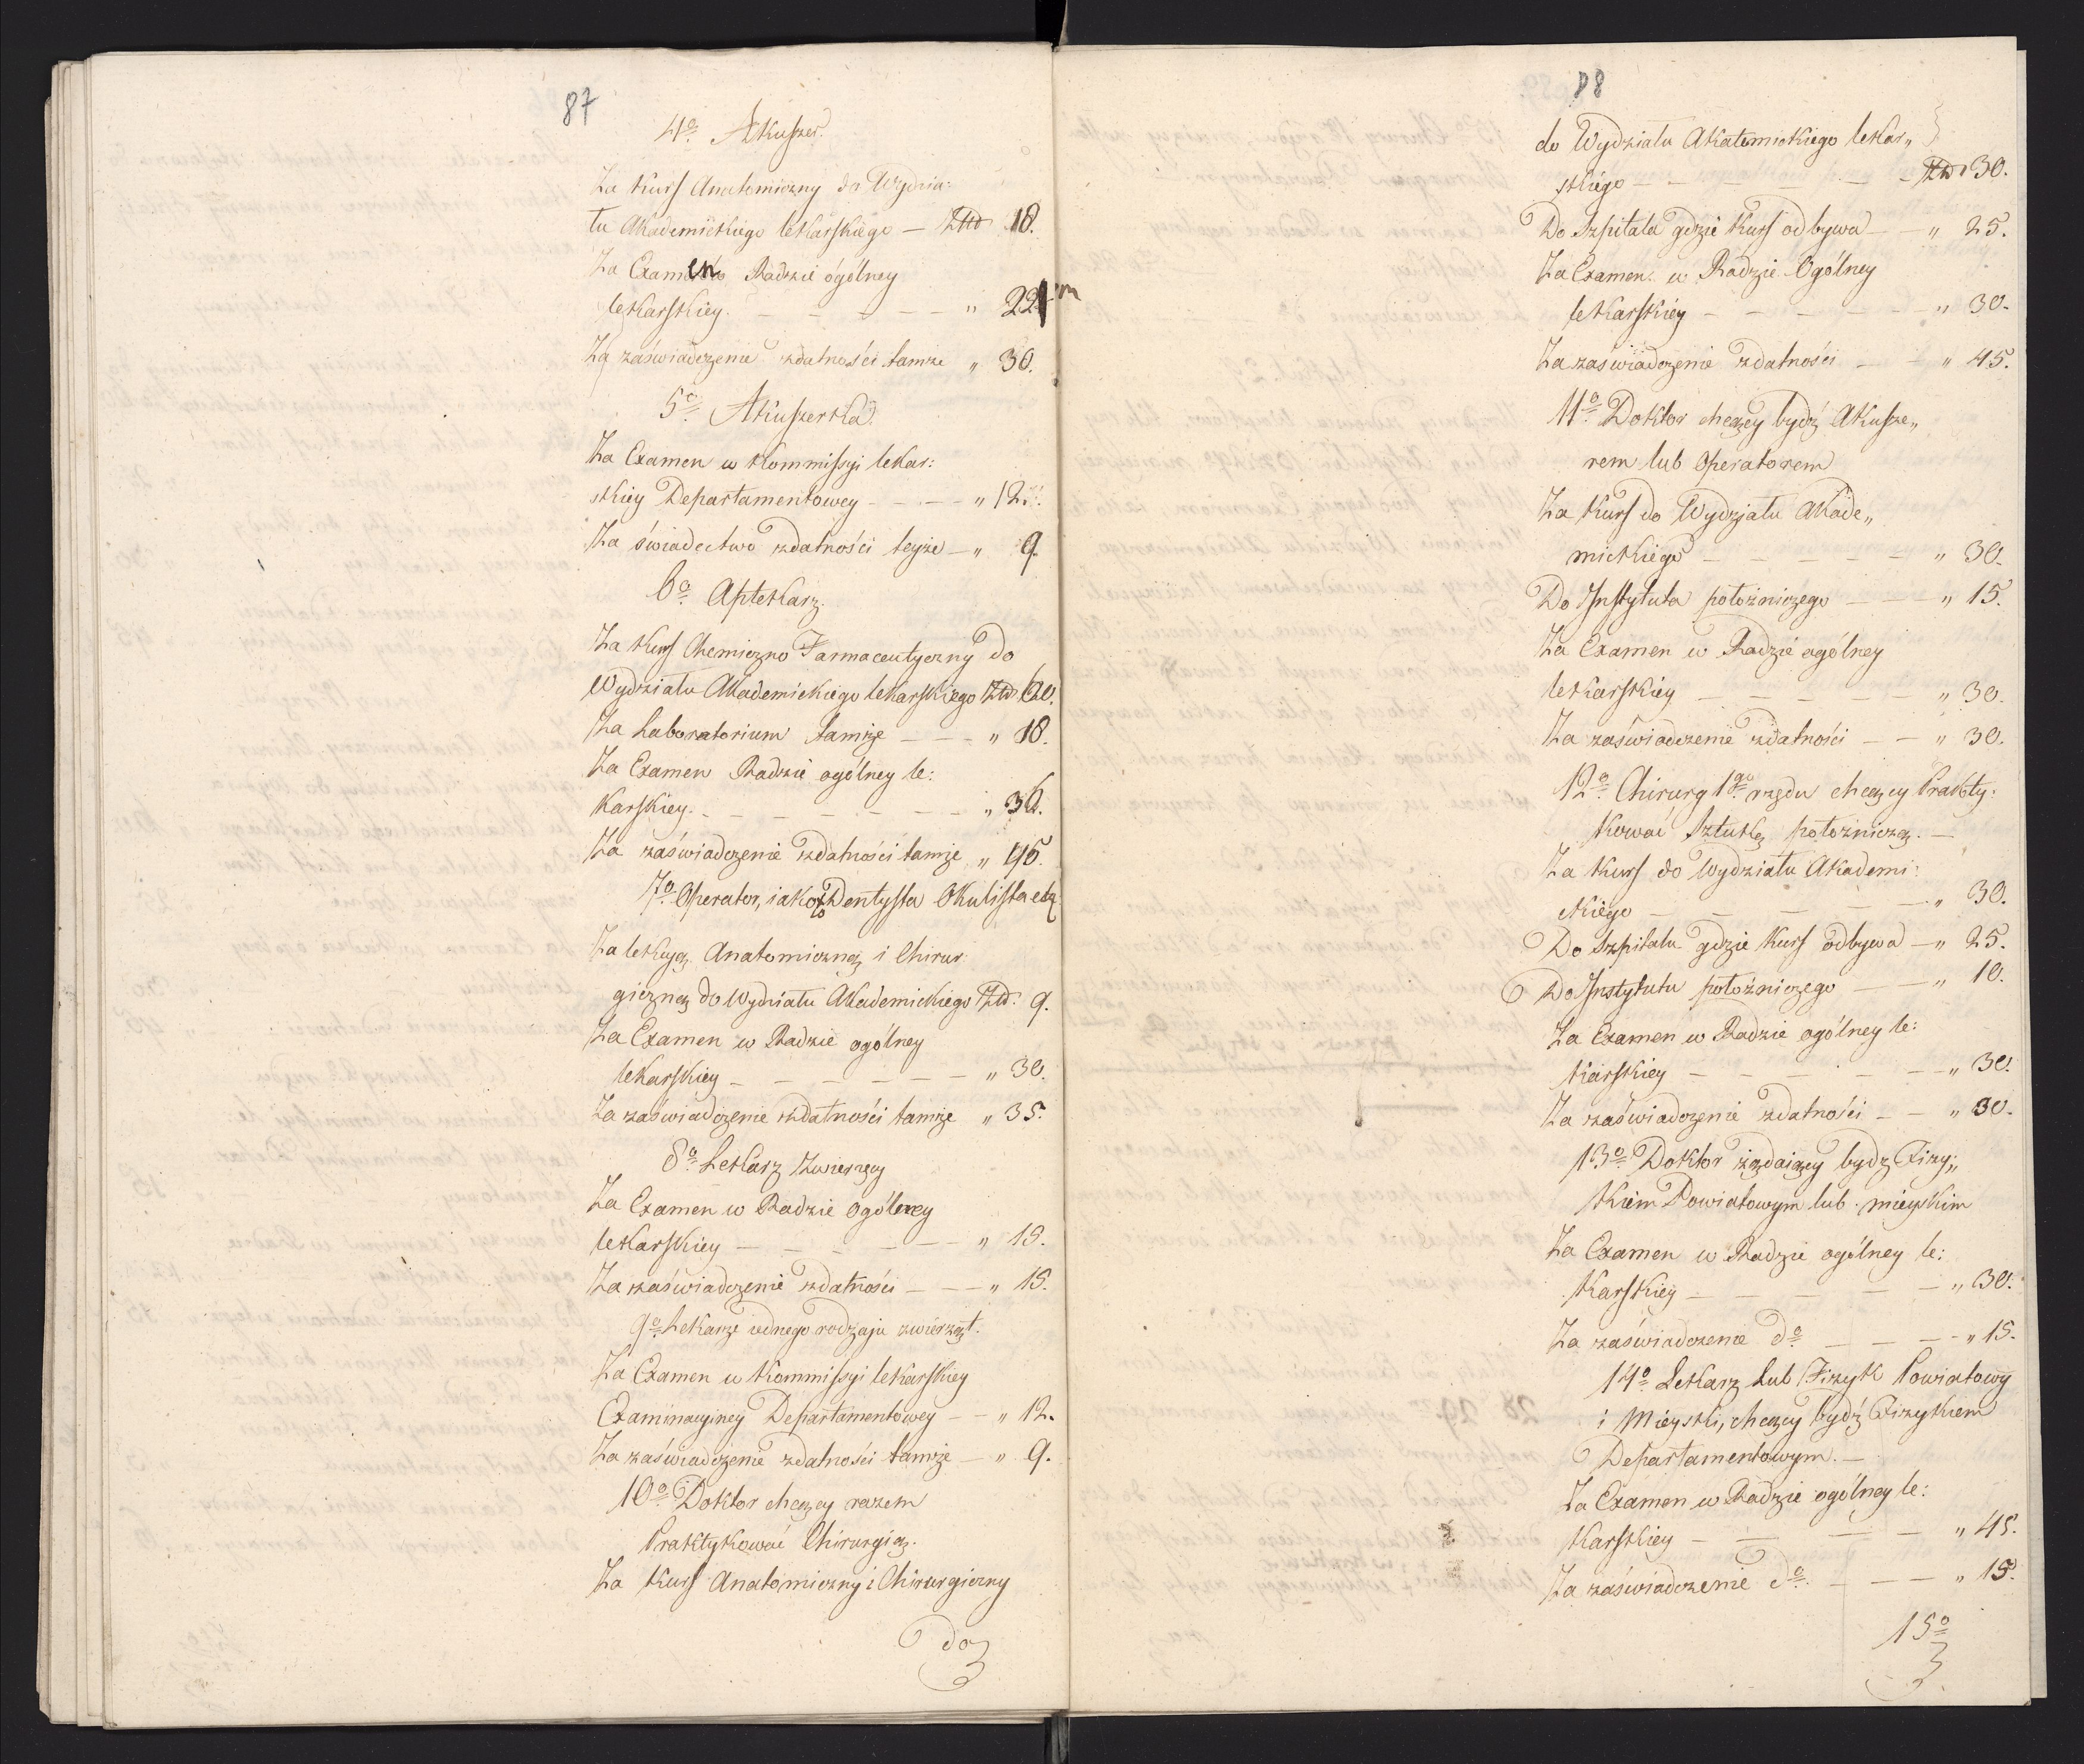 87
4º. Akuszer.
Za Kurs Anatomiczny do Wydzia:
łu Akademickiego lekarskiego — Złtt 18.
Za Examen Radzie ogólney
lekarskiey. — — — — — " 22
Za zaświadczenie zdatności tamże " 30.
5º. Akuszerka.
Za Examen w Kommissyi lekar:
skiey Departamentowey — — — " 12.
Za świadectwo zdatności teyże — " 9.
6º. Aptekarz.
Za Kurs Chemiczno Farmaceutyczny do
Wydziału Akademickiego lekarskiego Złtt
Za Laboratorium tamże — — — " 18.
Za Examen Radzie ogólney le:
karskiey. — — — — — — — " 36.
Za zaświadczenie zdatności tamże "
7º. Operator, iako to Dentysta Okulista etc
Za lekcyą Anatomiczną i Chirur
giczną do Wydziału Akademickiego Złtt. 9.
Za Examen w Radzie ogólney
lekarskiey — — — — — — " 30.
Za zaświadczenie zdatności tamże " 35.
8º. Lekarz Zwierzęcy
Za Examen w Radzie Ogólney
lekarskiey — — — — — — " 15.
Za zaświadczenie zdatności — — — " 15.
9º. Lekarze iednego rodzaju zwierząt.
Za Examen w Kommissyi lekarskiey
Examinacyiney Departamentowey — — " 12.
Za zaświadczenie zdatności tamże — " 9.
10º. Doktor chcący razem
Praktykować Chirurgią.
Za Kurs Anatomiczny i Chirurgiczny
do
88
do Wydziału Akatemickiego lekar„
skiego — — — — — — Złtt 30.
Do Szpitala gdzie Kurs odbywa — — " 25.
Za Examen. w Radzie Ogólney
lekarskiéy — — — — — — " 30.
Za zaświadczenie zdatności — — " 45.
11º. Doktor chcący bydź Akusze„
rem lub Operatorem
Za Kurs do Wydziału Akade„
mickiego — — — — — " 30.
Do Instytuta położniczego — — — " 15.
Za Examen w Radzie ogólney
lekarskiéy — — — — — " 30.
Za zaświadczenie zdatności — — " 30.
12º. Chirurg 1go. rzędu chcący Prakty:
kować Sztukę położniczą. —
Za Kurs do Wydziału Akademi:
ckiego — — — — — " 30.
Do Szpitalu gdzie Kurs odbywa — " 25.
Do Instytutu położniczego — — " 10.
Za Examen w Radzie ogólney le:
karskiey — — — — — — " 30.
Za zaświadczenie zdatności — — " 30.
13º. Doktor żądaiący bydz Fizy:„
kiem Powiatowym lub mieyskim
Za Examen w Radzie ogólney le:
karskiéy — — — — — — " 30.
Za zaświadczenie dº. — — — " 15.
14º. Lekarz Lub Fizyk Powiatowy
i Mieyski, chcący bydź Fizykiem
Departamentowym. —
Za Examen w Radzie ogólney le:
karskiey — — — — " 45.
Za zaświadczenie dº. — — — " 15.
15º.